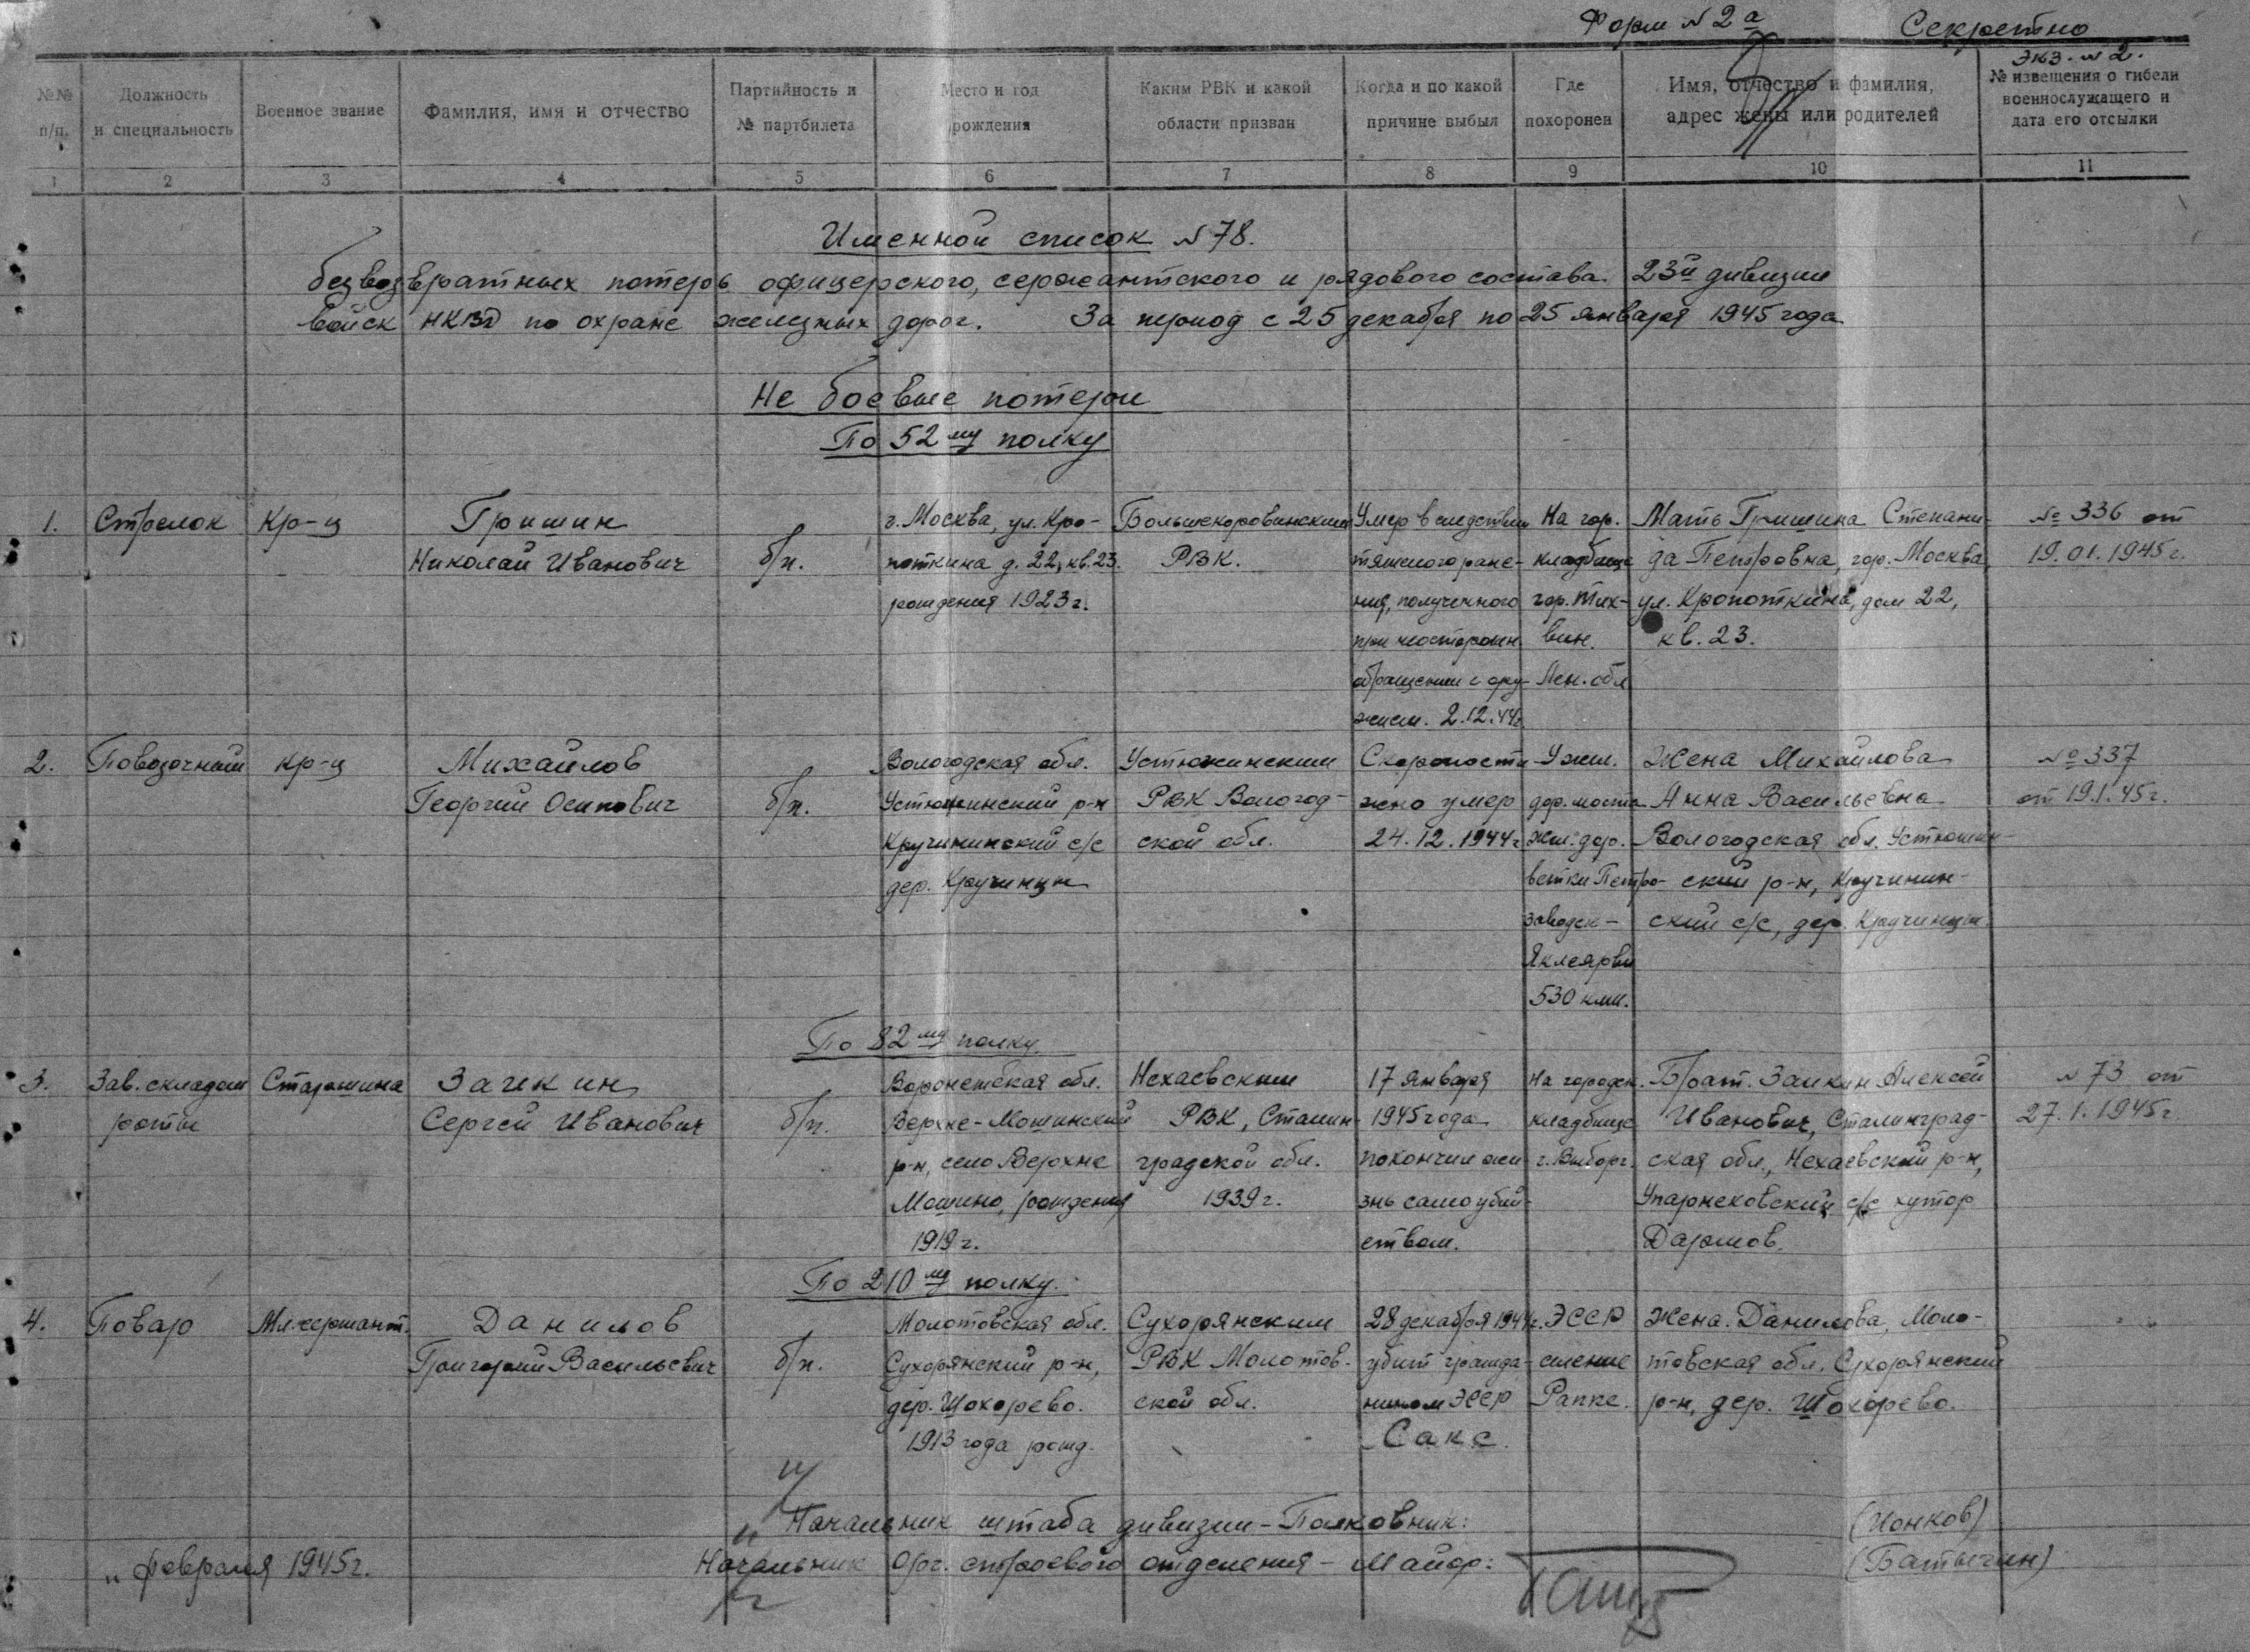 Форм № 2а
Секретно
Экз. № 2.
№№ п/п.
Должность и специальность
Военное звание
Фамилия, имя и отчество
Партийность и № партбилета
Место и год рождения
Каким РВК и какой области призван
Когда и по какой причине выбыл
Где похоронен
Имя, отчество и фамилия, адрес жены или родителей
№ извещения о гибели военнослужащего и дата его отсылки
1 2 3 4 5 6 7 8 9 10 11
Именной список № 78.
безвозвратных потерь офицерского, сержантского и рядового состава 23й дивизии
войск НКВД по охране железных дорог. За период с 25 декабря по 25 января 1945 года
Не боевые потери
По 52му полку
1. Стрелок Кр-ц Гришин г. Москва, ул. Кро- Большекоровинским Умер вследствии На гор. Мать Гришина Степани- № 336 от
Николай Иванович б/п. поткина д. 22, кв. 23. РВК. тяжелого ране- кладбище да Петровна, гор. Москва, 19.01.1945г.
рождения 1923г. ния, полученного гор. Тих- ул. Кропоткина, дом 22,
при неосторожн. вин. кв. 23.
обращении с ору- Лен. обл
жием. 2.12.44г.
2. Повозочный Кр-ц Михайлов Вологодская обл. Устюжинским Скоропости- У жел. Жена Михайлова № 337
Георгий Осипович б/п. Устюжинский р-н РВК Вологод- жно умер дор. моста Анна Васильевна от 19.1.45г.
Кручининский с/с ской обл. 24.12.1944г. жел. дор. Вологодская обл. Устюжин-
дер. Кручинцы ветки Петро- ский р-н, Кручинин-
заводск - ский с/с, дер. Кручинцы.
Яклеярви
530 клм.
По 82му полку.
3. Зав. складом Старшина Заикин Воронежская обл. Нехаевским 17 января На городск. Брат. Заикин Алексей № 73 от
роты Сергей Иванович б/п. Верхне-Мошинский РВК, Сталин- 1945 года кладбище Иванович, Сталинград- 27.1.1945г.
р-н, село Верхне градской обл. покончил жи г. Выборг. ская обл., Нехаевский р-н,
Мошино, рождения 1939г. знь самоубий- с/с хутор
1919г. ством.
По 210му полку.
4. Повар Мл. сержант. Данилов Молотовская обл. Сухорянским 28 декабря 1944г. ЭССР Жена. Данилова, Моло-
Григорий Васильевич б/п. Сухорянский р-н, РВК Молотов- убит гражда- имение товская обл. Сухорянский
дер. Шохорево. ской обл. нином ЭССР Рапке. р-н, дер. Шохорево.
1913 года рожд. Сакс.
Начальник штаба дивизии - Полковник: (Ионков)
" февраля 1945г. Начальник Орг. строевого отделения - Майор: (Батычин)